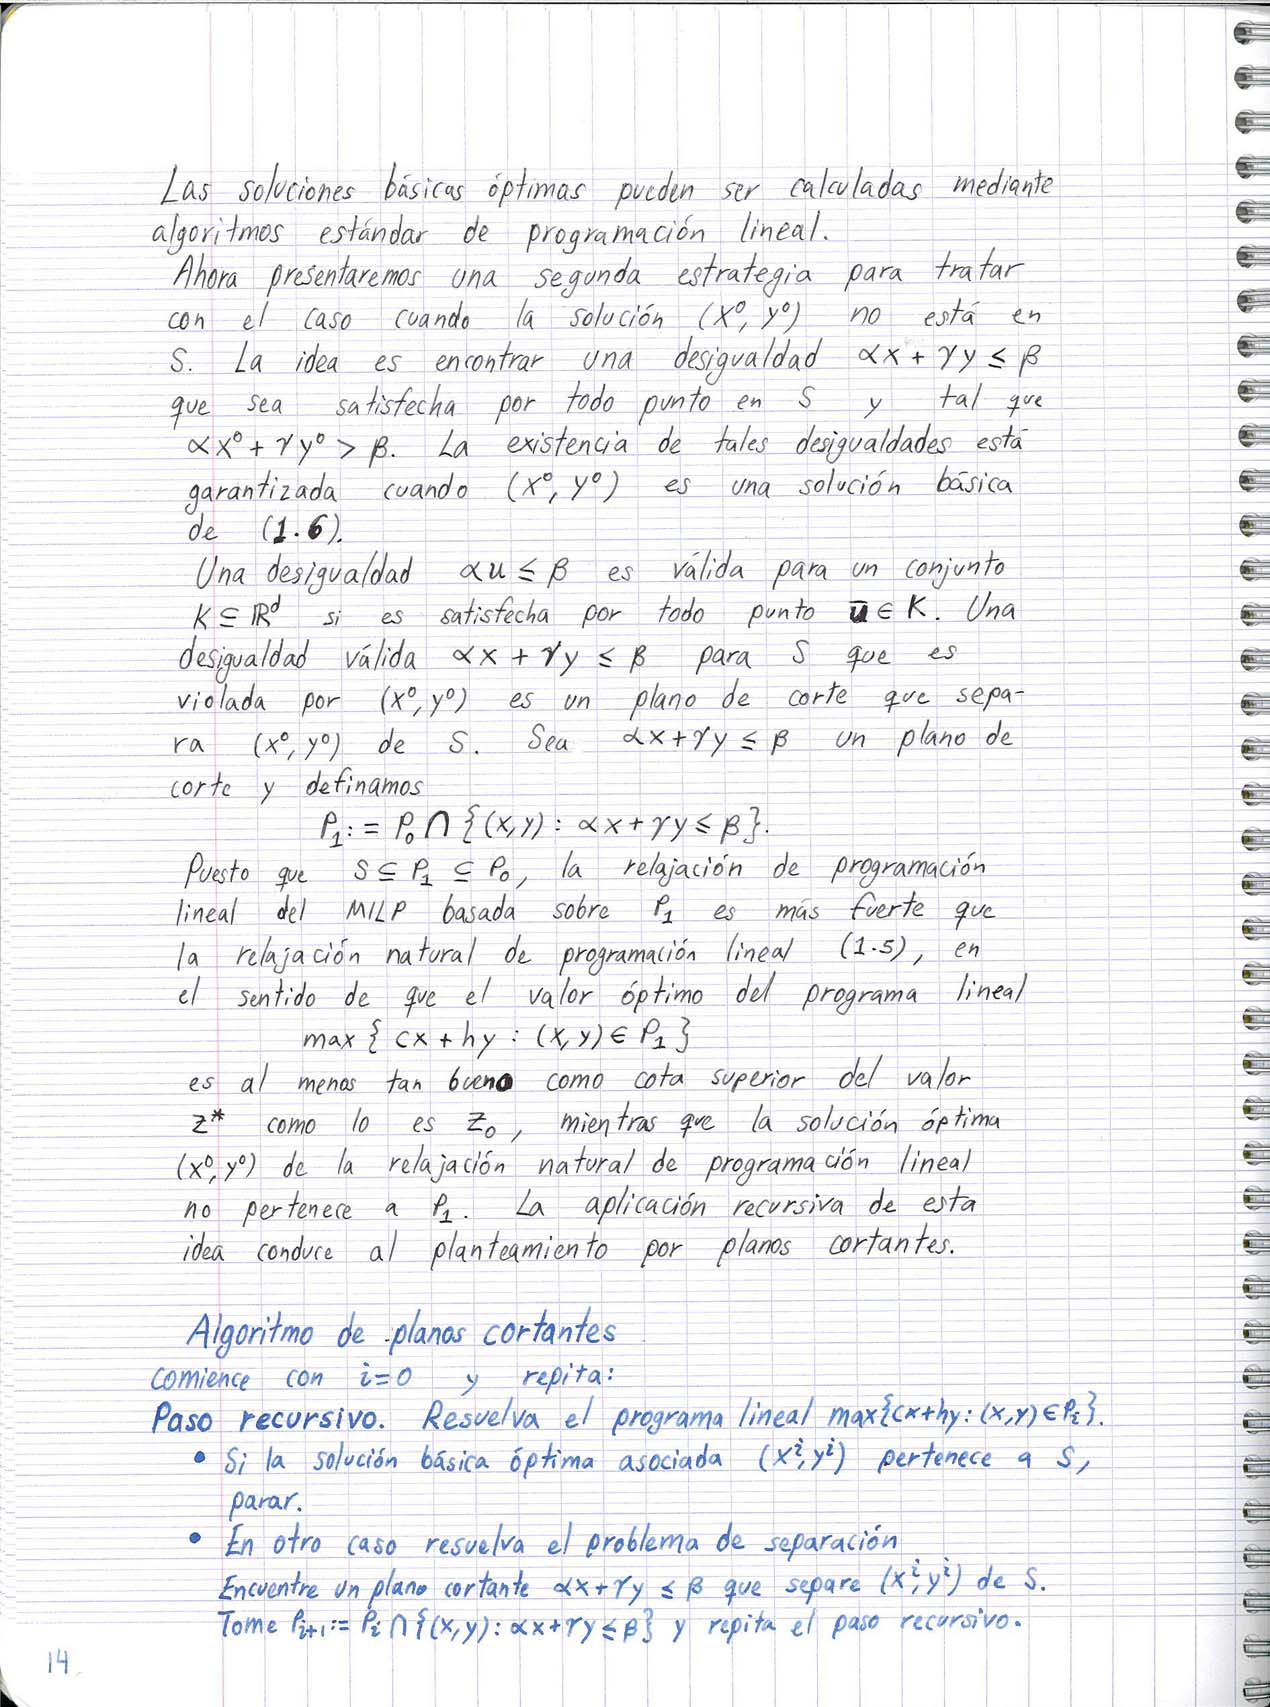 Las soluciones básicas óptimas pueden ser calculadas mediante
algoritmos estándar de programación lineal.
Ahora presentaremos una segunda estrategia para tratar
con el caso cuando la solución (x⁰, y⁰) no está en
S. La idea es encontrar una desigualdad αx + γy ≤ β
que sea satisfecha por todo punto en S y tal que
αx⁰ + γy⁰ > β. La existencia de tales desigualdades está
garantizada cuando (x⁰, y⁰) es una solución básica
de (1.6).
Una desigualdad αu ≤ β es válida para un conjunto
K ⊆ ℝᵈ si es satisfecha por todo punto ū ∈ K. Una
desigualdad válida αx + γy ≤ β para S que es
violada por (x⁰, y⁰) es un plano de corte que sepa-
ra (x⁰, y⁰) de S. Sea αx + γy ≤ β un plano de
corte y definamos
P₁ := P₀ ∩ {(x, y) : αx + γy ≤ β}.
Puesto que S ⊆ P₁ ⊆ P₀, la relajación de programación
lineal del MILP basada sobre P₁ es más fuerte que
la relajación natural de programación lineal (1.5), en
el sentido de que el valor óptimo del programa lineal
max { cx + hy : (x, y) ∈ P₁ }
es al menos tan bueno como cota superior del valor
z* como lo es z₀, mientras que la solución óptima
(x⁰, y⁰) de la relajación natural de programación lineal
no pertenece a P₁. La aplicación recursiva de esta
idea conduce al planteamiento por planos cortantes.
Algoritmo de planos cortantes
comience con i=0 y repita:
Paso recursivo. Resuelva el programa lineal max{cx+hy : (x, y) ∈ Pᵢ}.
• Si la solución básica óptima asociada (xⁱ, yⁱ) pertenece a S,
parar.
• En otro caso resuelva el problema de separación
Encuentre un plano cortante αx + γy ≤ β que separe (xⁱ, yⁱ) de S.
Tome Pᵢ₊₁ := Pᵢ ∩ {(x, y) : αx + γy ≤ β} y repita el paso recursivo.
14